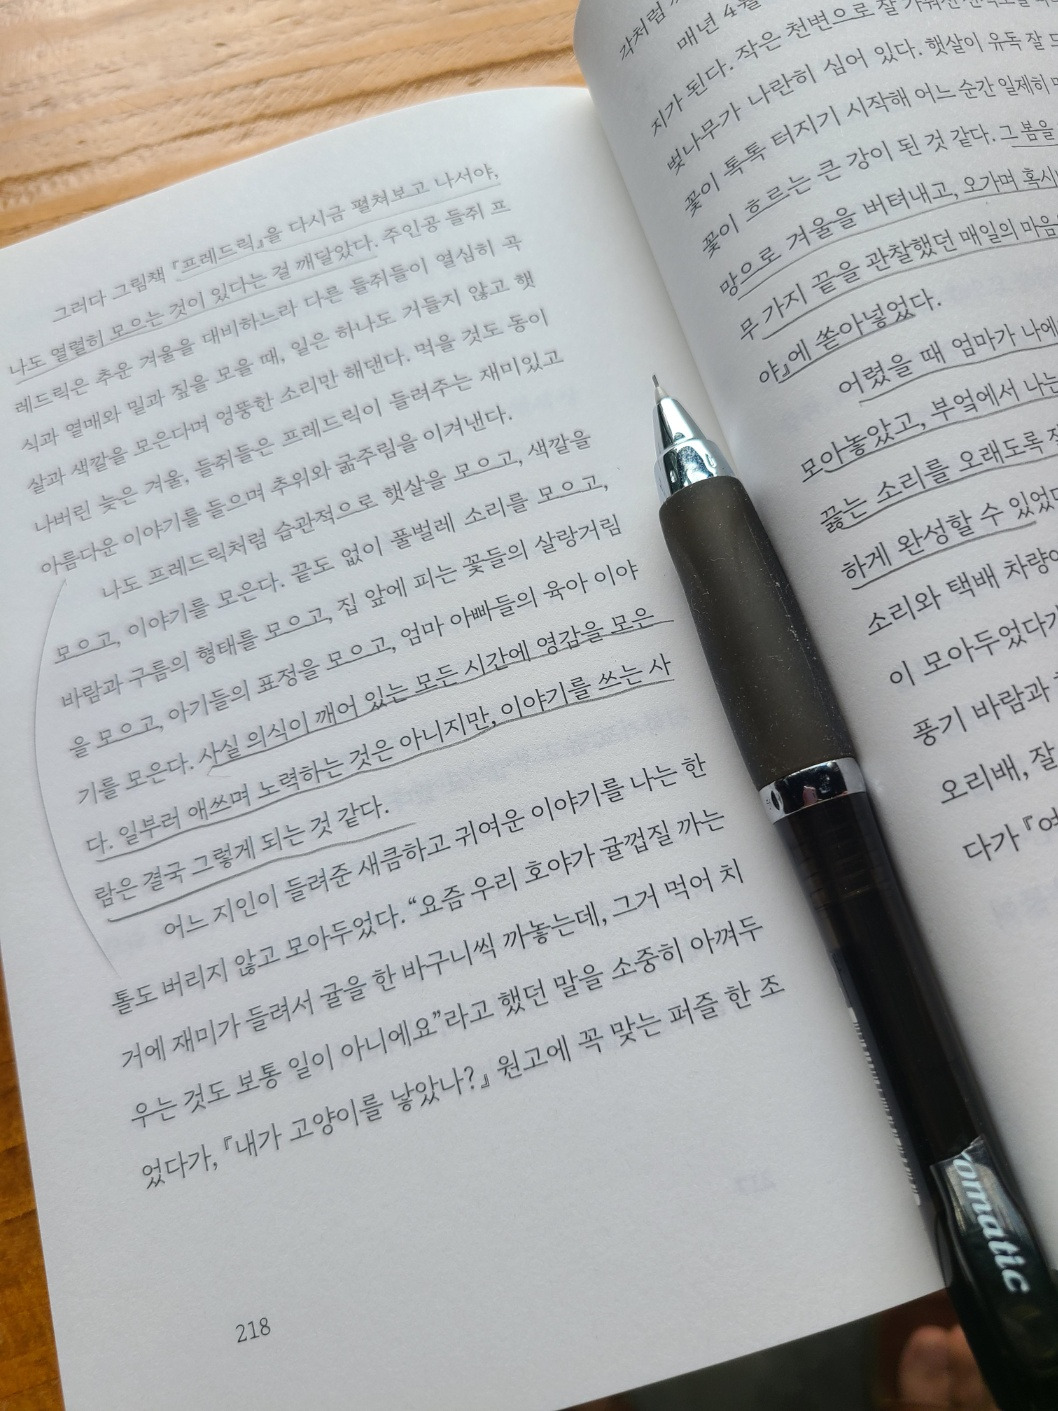 그러다 그림책 『프레드릭』을 다시금 펼쳐보고 나서야,
나도 열렬히 모으는 것이 있다는 걸 깨달았다. 주인공 들쥐 프
레드릭은 추운 겨울을 대비하느라 다른 들쥐들이 열심히 곡
식과 열매와 밀과 짚을 모을 때, 일은 하나도 거들지 않고 햇
살과 색깔을 모은다며 엉뚱한 소리만 해댄다. 먹을 것도 동이
나버린 늦은 겨울, 들쥐들은 프레드릭이 들려주는 재미있고
아름다운 이야기를 들으며 추위와 굶주림을 이겨낸다.
나도 프레드릭처럼 습관적으로 햇살을 모으고, 색깔을
모으고, 이야기를 모은다. 끝도 없이 풀벌레 소리를 모으고,
바람과 구름의 형태를 모으고, 집 앞에 피는 꽃들의 살랑거림
을 모으고, 아기들의 표정을 모으고, 엄마 아빠들의 육아 이야
기를 모은다. 사실 의식이 깨어 있는 모든 시간에 영감을 모은
다. 일부러 애쓰며 노력하는 것은 아니지만, 이야기를 쓰는 사
람은 결국 그렇게 되는 것 같다.
어느 지인이 들려준 새큼하고 귀여운 이야기를 나는 한
톨도 버리지 않고 모아두었다. “요즘 우리 호야가 귤껍질 까는
거에 재미가 들려서 귤을 한 바구니씩 까놓는데, 그거 먹어 치
우는 것도 보통 일이 아니에요”라고 했던 말을 소중히 아껴두
었다가, 『내가 고양이를 낳았나?』 원고에 꼭 맞는 퍼즐 한 조
218
각처럼
매년 4월
지가 된다. 작은 천변으로 잘
벚나무가 나란히 심어 있다. 햇살이 유독 잘
꽃이 톡톡 터지기 시작해 어느 순간 일제히
꽃이 흐르는 큰 강이 된 것 같다. 그 봄을
망으로 겨울을 버텨내고, 오가며 혹시
무 가지 끝을 관찰했던 매일의 마음
야』에 쏟아넣었다.
어렸을 때 엄마가 나에
모아놓았고, 부엌에서 나는
끓는 소리를 오래도록
하게 완성할 수 있었
소리와 택배 차량
이 모아두었다가
풍기 바람과
오리배, 잘
다가 『
omatic